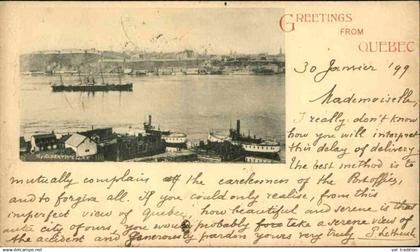 GREETINGS
FROM
QUEBEC
30 Janvier '99
Mademoiselle
I really don't know
how you will interpret
this delay of delivery
The best method is to
mutually complain of the carelessness of the Postoffice,
and to forgive all. if you could only realise, from this
imperfect view of Quebec, how beautiful and serene is that
quite city of ours, you would probably take a serene view of
the accident and generously pardon yours very truly